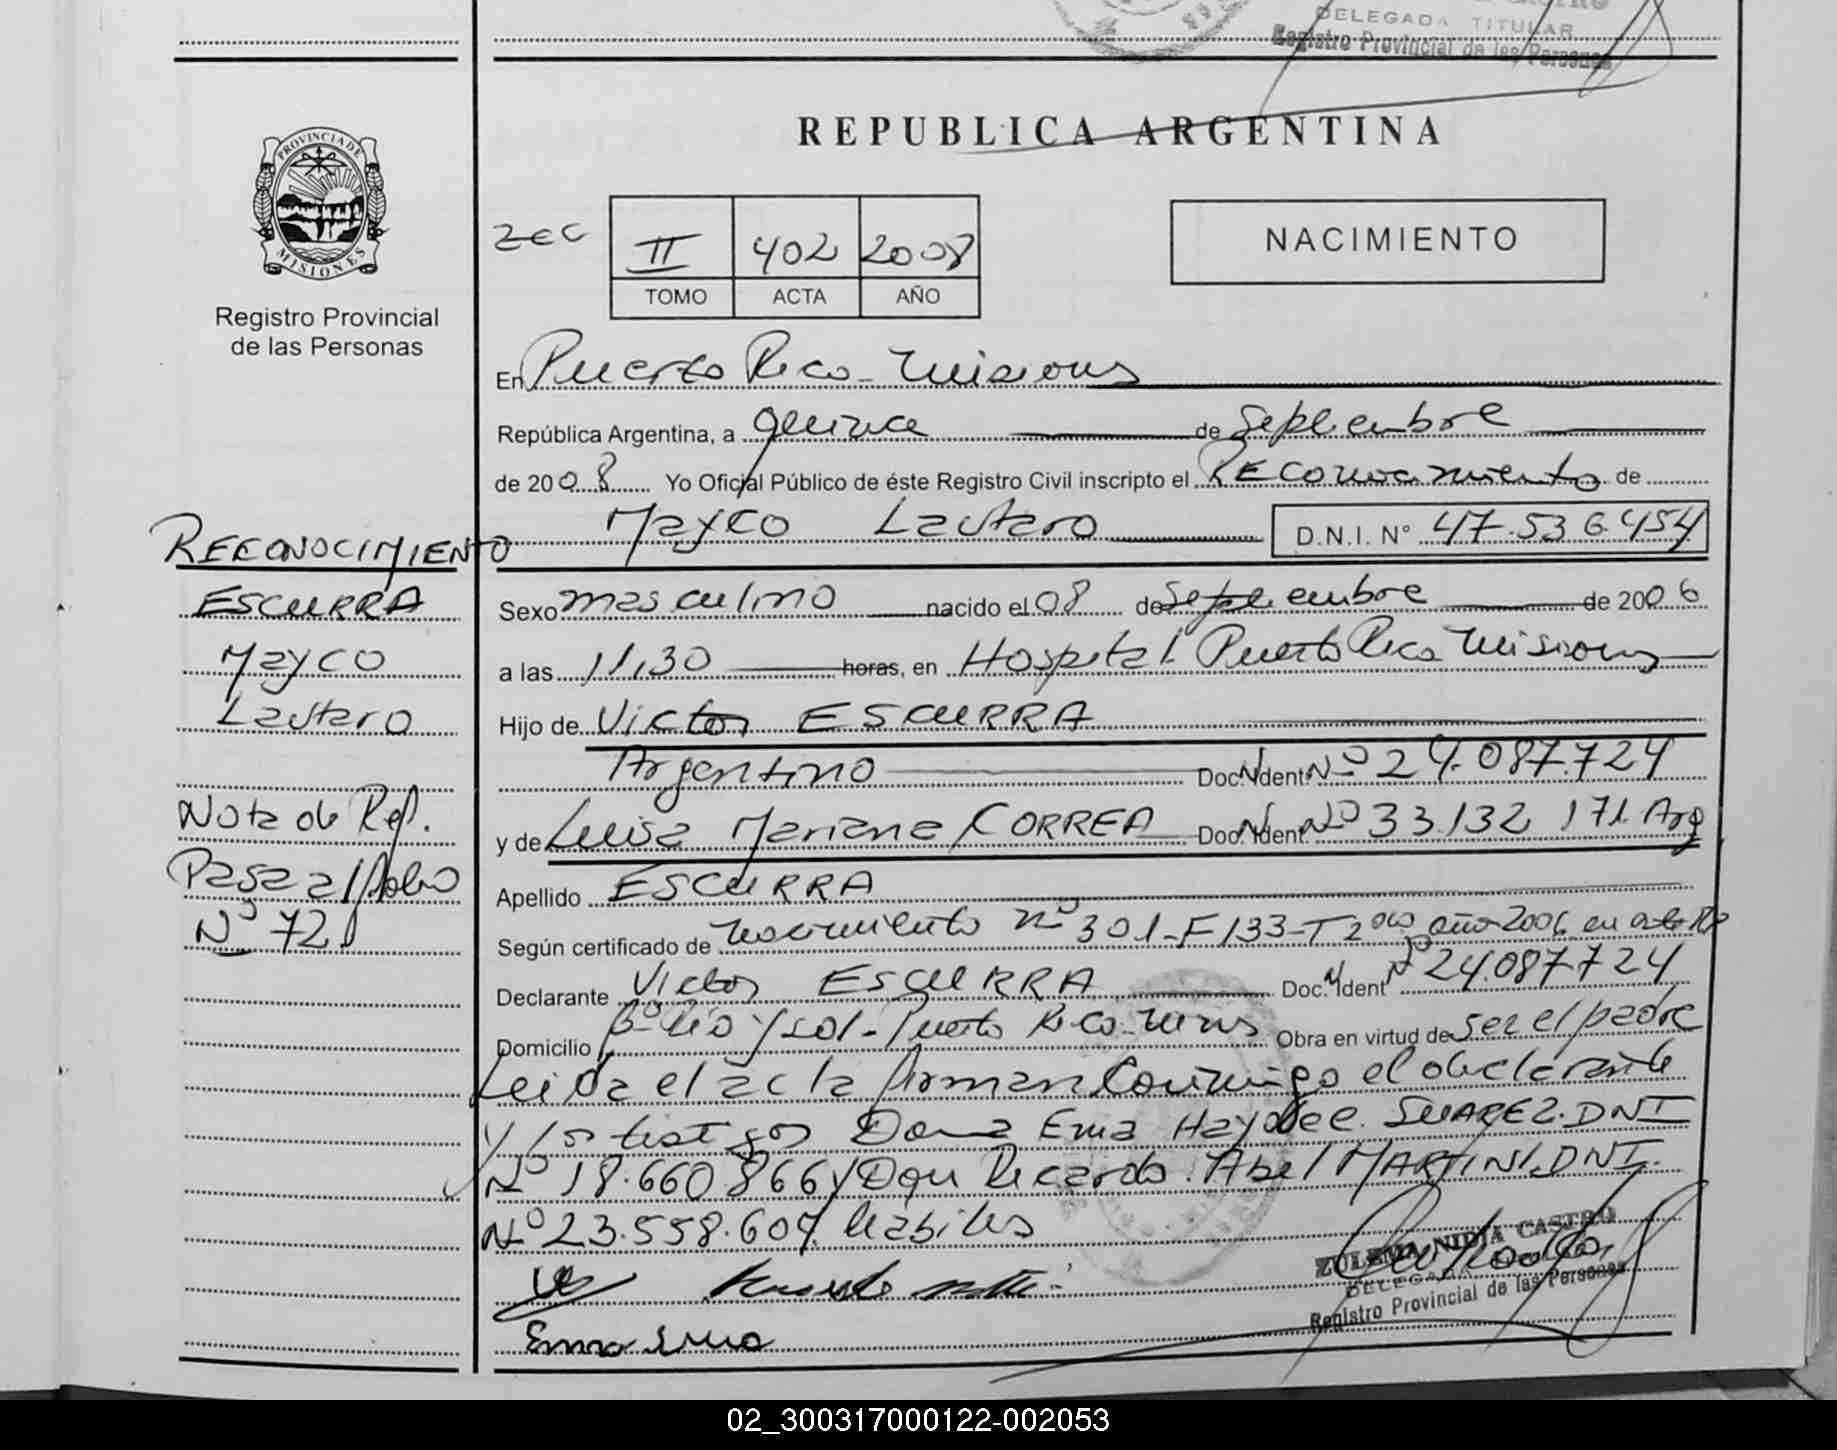 DELEGADA TITULAR
Registro Provincial de las Personas
REPUBLICA ARGENTINA
PROVINCIA DE
MISIONES
Registro Provincial
de las Personas
II 402 2008
TOMO ACTA AÑO
NACIMIENTO
En Puerto Rico - Misiones
República Argentina, a quince de Septiembre
de 2008 Yo Oficial Público de éste Registro Civil inscripto el Reconocimiento de
Mayco Lautaro D.N.I. N° 47.536.454
RECONOCIMIENTO
ESCURRA
Mayco
Lautaro
Nota de Ref.
Pasa al folio
N° 72
Sexo masculino nacido el 08 de Septiembre de 2006
a las 11,30 horas, en Hospital Puerto Rico Misiones
Hijo de Victor ESCURRA
Argentino Doc. N. Ident. N° 24.087.724
y de Luisa Mariana CORREA Doc. N. Ident. N° 33.132.171. Arg
Apellido ESCURRA
Según certificado de nacimiento n° 301-F133-T2 do año 2006 en este
Declarante Victor ESCURRA Doc. N. Ident N° 24.087.724
Domicilio B° Rio y sol - Puerto Rico Obra en virtud de ser el padre
Leida el acta firman conmigo el declarante
y los testigos Doña Ema Haydee SUAREZ. DNI
N° 18.660.866 y Don Ricardo Abel MARTINI. DNI.
N° 23.558.607 habiles
ZULEMA NIDIA CASTRO
DELEGADA
Registro Provincial de las Personas
02_300317000122-002053